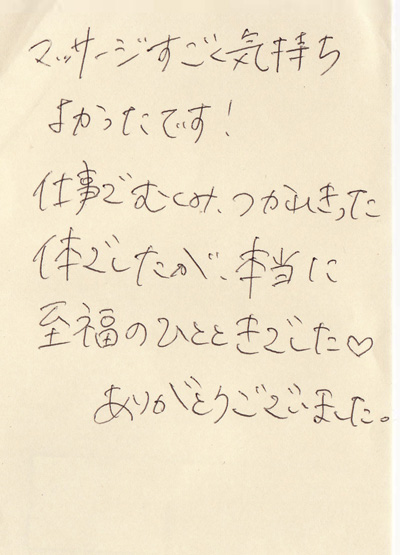 マッサージすごく気持ち
よかったです!
仕事でむくみ、つかれきった
体でしたが、本当に
至福のひとときでした♡
ありがとうございました。